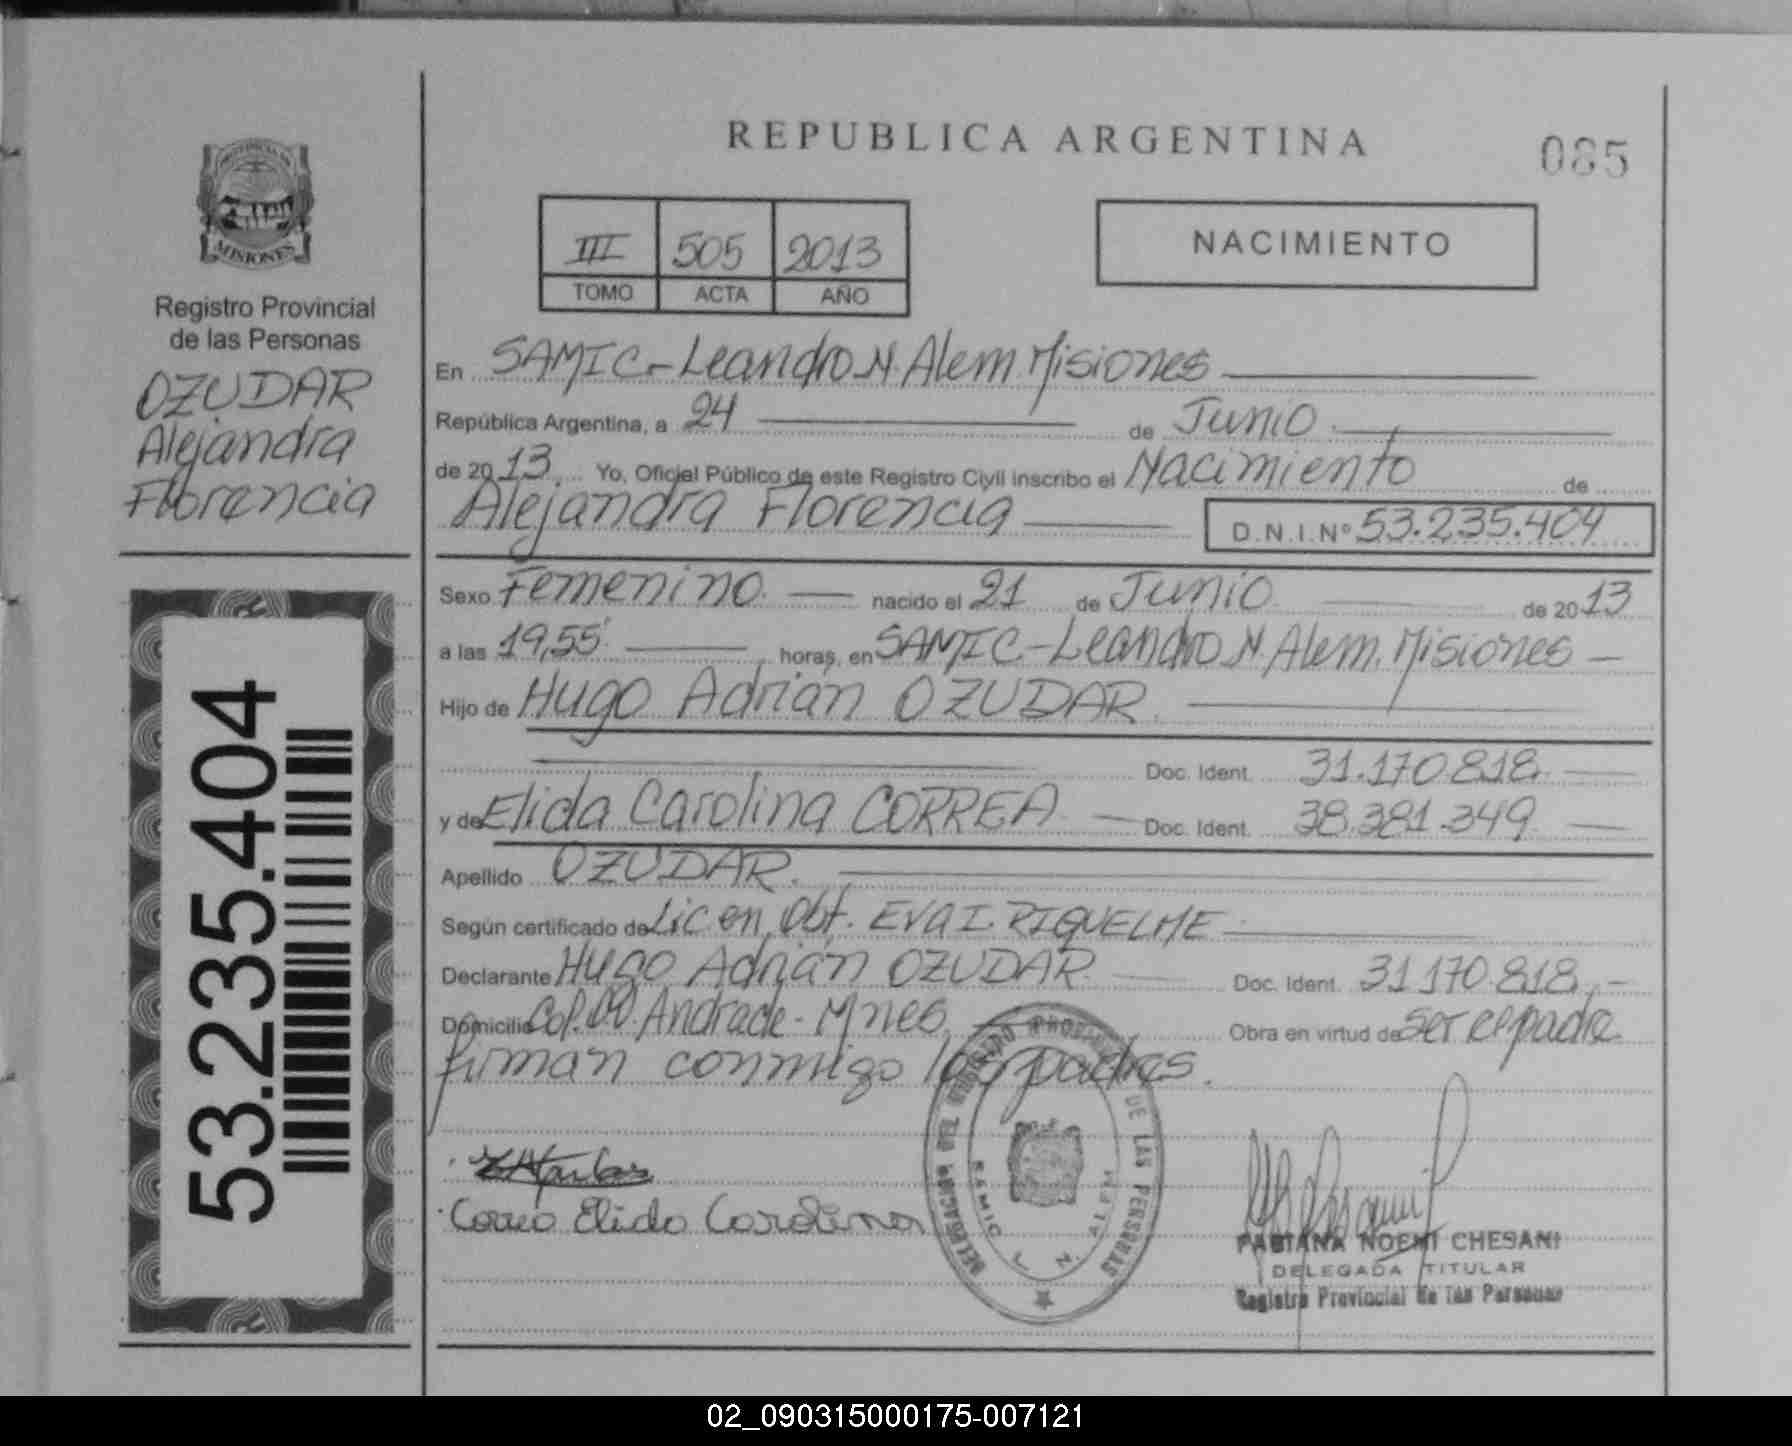 REPUBLICA ARGENTINA
085
PROVINCIA DE
MISIONES
Registro Provincial
de las Personas
OZUDAR
Alejandra
Florencia
53.235.404
III 505 2013
TOMO ACTA AÑO
NACIMIENTO
En SAMIC-Leandro N. Alem Misiones
República Argentina, a 24 de Junio
de 2013 Yo, Oficial Público de este Registro Civil inscribo el Nacimiento de
Alejandra Florencia D.N.I.Nº 53.235.404
Sexo Femenino nacido el 21 de Junio de 2013
a las 19,55 horas, en SAMIC-Leandro N. Alem. Misiones
Hijo de Hugo Adrián OZUDAR
Doc. Ident. 31.170.818
y de Elida Carolina CORREA Doc. Ident. 38.381.349
Apellido OZUDAR
Según certificado de Lic en Obt. EVA I. RIQUELME
Declarante Hugo Adrián OZUDAR Doc. Ident. 31.170.818
Domicilio Col. Andrade-Mnes Obra en virtud de ser el padre
firman conmigo los padres.
Elida Carolina
DE LAS PERSONAS
SAMIC L. N. ALEM
FABIANA NOEMI CHESANI
DELEGADA TITULAR
Registro Provincial de las Personas
02_090315000175-007121